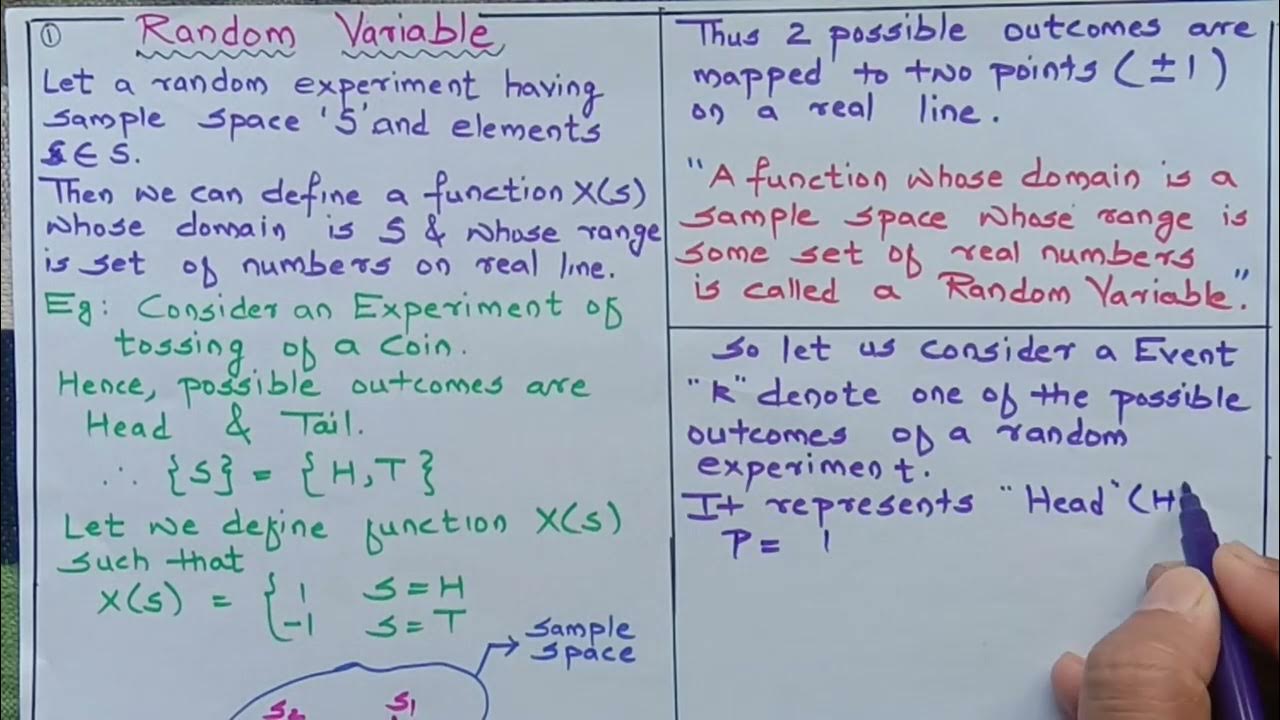 ①
Random Variable
Let a random experiment having
sample space 'S' and elements
s ∈ S.
Then we can define a function X(s)
whose domain is S & whose range
is set of numbers on real line.
Eg: Consider an Experiment of
tossing of a coin.
Hence, possible outcomes are
Head & Tail.
∴ {S} = {H, T}
Let we define function X(s)
such that
X(s) = { 1 s = H
-1 s = T
sample
space
S2 S1
Thus 2 possible outcomes are
mapped to two points (±1)
on a real line.
"A function whose domain is a
sample space whose range is
some set of real numbers
is called a Random Variable."
So let us consider a Event
"k" denote one of the possible
outcomes of a random
experiment.
It represents "Head" (H
P = 1